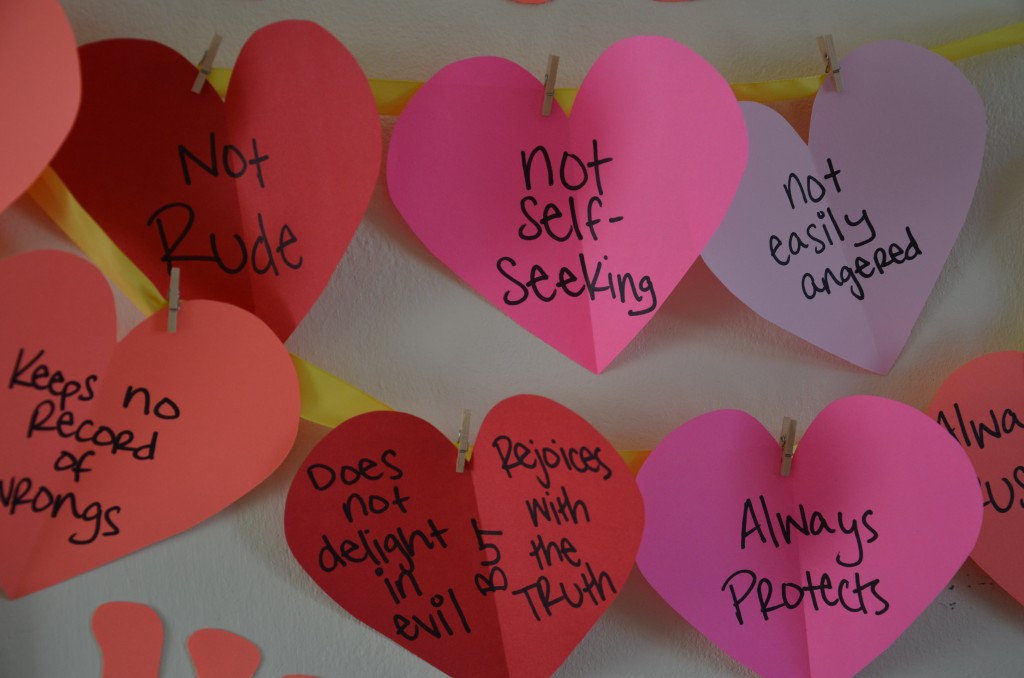 Not
Rude
not
self-
seeking
not
easily
angered
Keeps no
Record
of
wrongs
Does
not
delight
in
evil
BUT
Rejoices
with
the
TRuth
Always
Protects